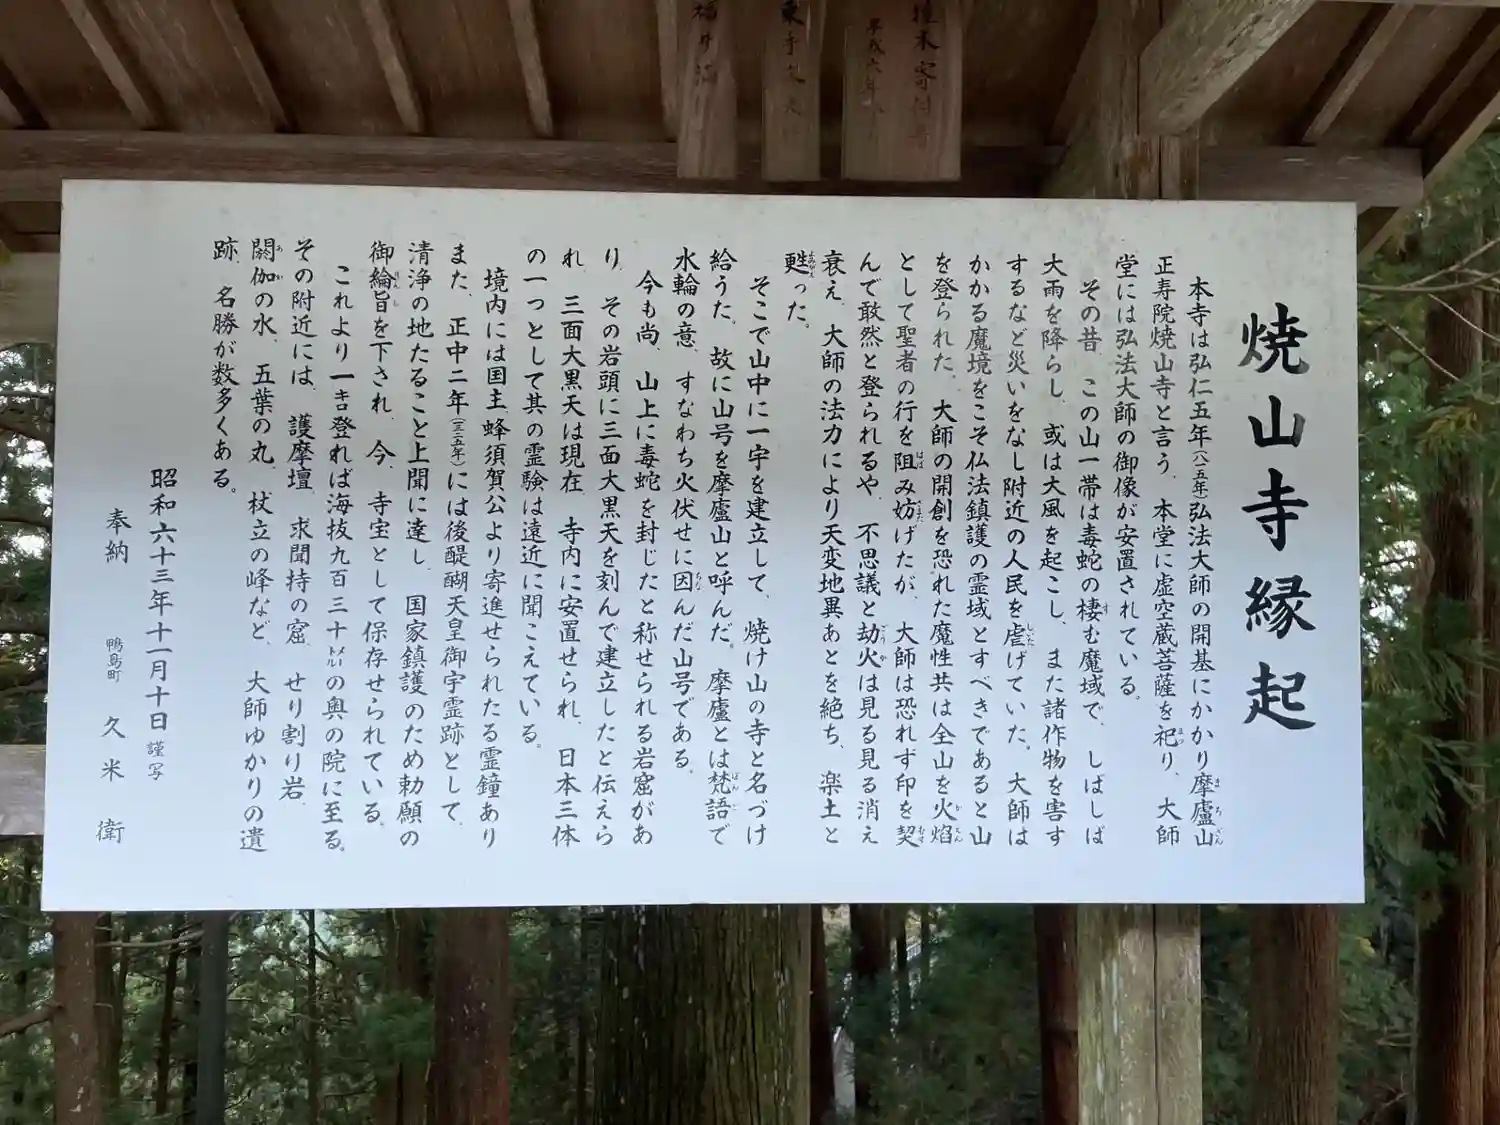 植木寄付者
平成六年
東
福井
焼山寺縁起
本寺は弘仁五年(八一五年)弘法大師の開基にかかり摩盧山
正寿院焼山寺と言う、本堂に虚空蔵菩薩を祀り、大師
堂には弘法大師の御像が安置されている。
その昔、この山一帯は毒蛇の棲む魔域で、しばしば
大雨を降らし、或は大風を起こし、また諸作物を害す
するなど災いをなし附近の人民を虐げていた。大師は
かかる魔境をこそ仏法鎮護の霊域とすべきであると山
を登られた。大師の開創を恐れた魔性共は全山を火焰
として聖者の行を阻み妨げたが、大師は恐れず印を契
んで敢然と登られるや、不思議と劫火は見る見る消え
衰え、大師の法力により天変地異あとを絶ち、楽土と
甦った。
そこで山中に一宇を建立して、焼け山の寺と名づけ
給うた、故に山号を摩盧山と呼んだ。摩盧とは梵語で
水輪の意、すなわち火伏せに因んだ山号である。
今も尚、山上に毒蛇を封じたと称せられる岩窟があ
り、その岩頭に三面大黒天を刻んで建立したと伝えら
れ、三面大黒天は現在、寺内に安置せられ、日本三体
の一つとして其の霊験は遠近に聞こえている。
境内には国主蜂須賀公より寄進せられたる霊鐘あり
また、正中二年(一三二五年)には後醍醐天皇御宇霊跡として、
清浄の地たること上聞に達し、国家鎮護のため勅願の
御綸旨を下され、今、寺宝として保存せられている。
これより一㌔登れば海抜九百三十㍍の奥の院に至る。
その附近には、護摩壇、求聞持の窟、せり割り岩、
閼伽の水、五葉の丸、杖立の峰など、大師ゆかりの遺
跡、名勝が数多くある。
昭和六十三年十一月十日 謹写
奉納 鴨島町 久米 衛